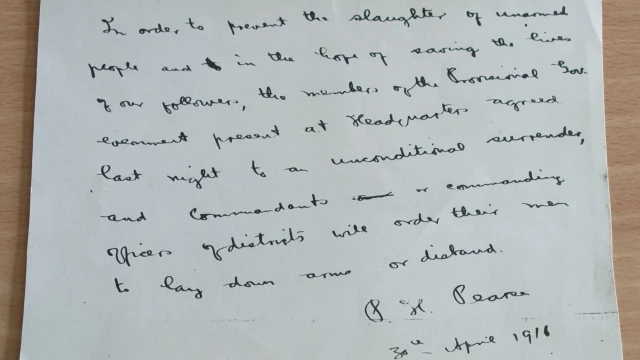 In order to prevent the slaughter of unarmed
people and in the hope of saving the lives
of our followers, the members of the Provisional Gov-
ernment present at Headquarters agreed
last night to an unconditional surrender,
and commandants or commanding
officers of districts will order their men
to lay down arms or disband.
P. H. Pearse
30th April 1916